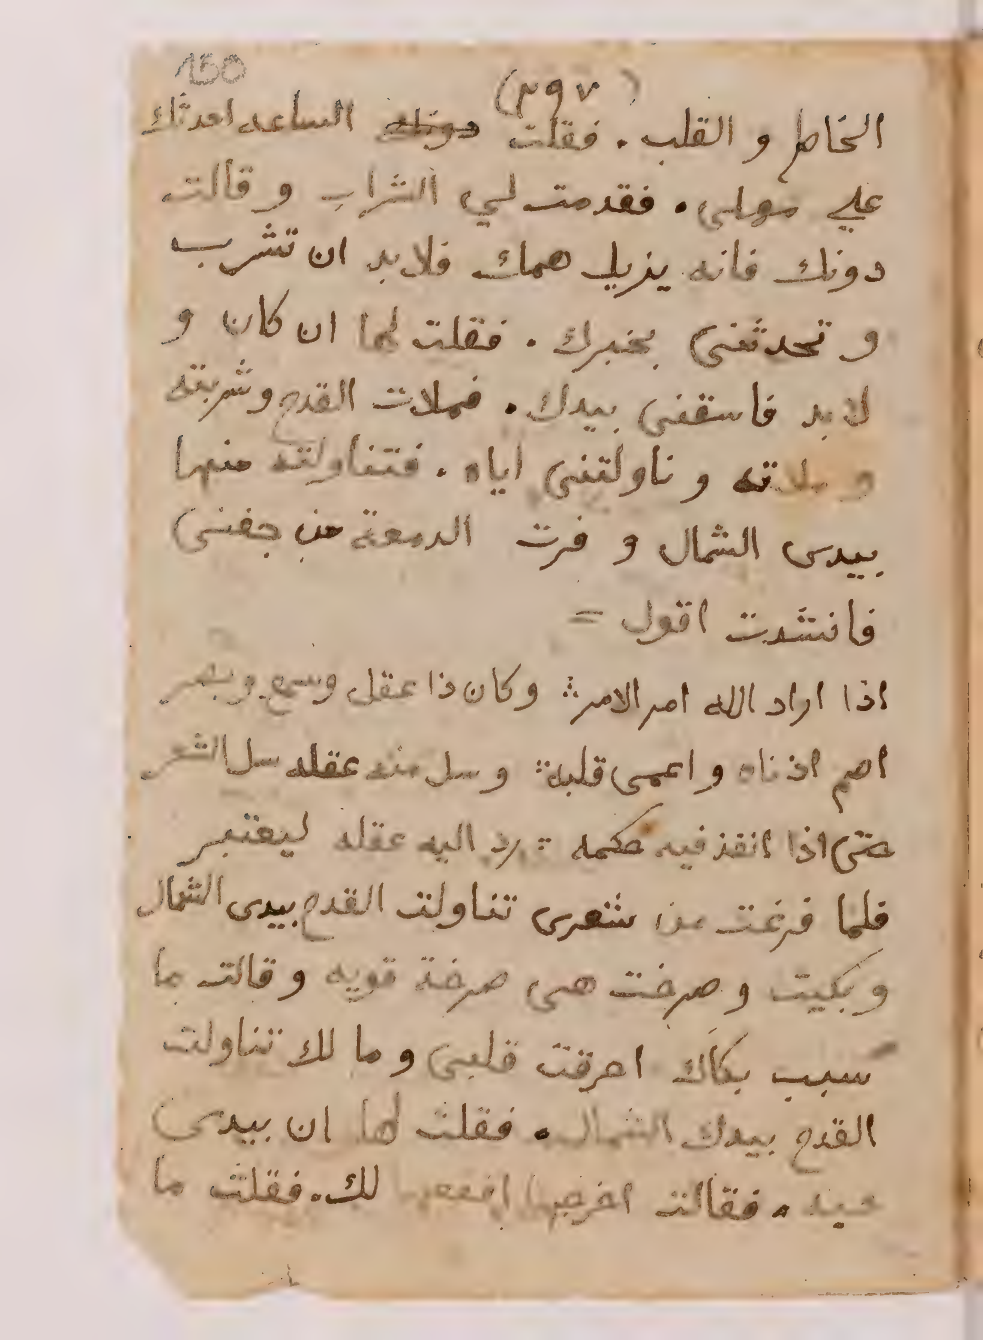 150
(٣٩٧)
الخاطر و القلب . فقلت دونك الساعه احدثك
علي مهلي . فقدمت لي الشراب و قالت
دونك فانه يزيل همك فلابد ان تشرب
و تحدثني بخبرك . فقلت لها ان كان و
لابد فاسقني بيدك . فملات القدح وشربته
و ملاته و ناولتني اياه . فتناولته منها
بيدي الشمال و فرت الدمعة من جفني
فانشدت اقول =
اذا اراد الله امر الامرء وكان ذا عقل وسمع وبصر
اصم اذناه و اعمى قلبة وسل منه عقله سل الشعر
حتي اذا انفذ فيه حكمه رد اليه عقله ليعتبر
فلما فرغت من شعري تناولت القدح بيدي الشمال
وبكيت و صرخت هي صرخة قويه و قالت ما
سبب بكاك احرقت قلبي و ما لك تناولت
القدح بيدك الشمال . فقلت لها ان بيدي
حبه . فقالت اخرجها لك . فقلت ما